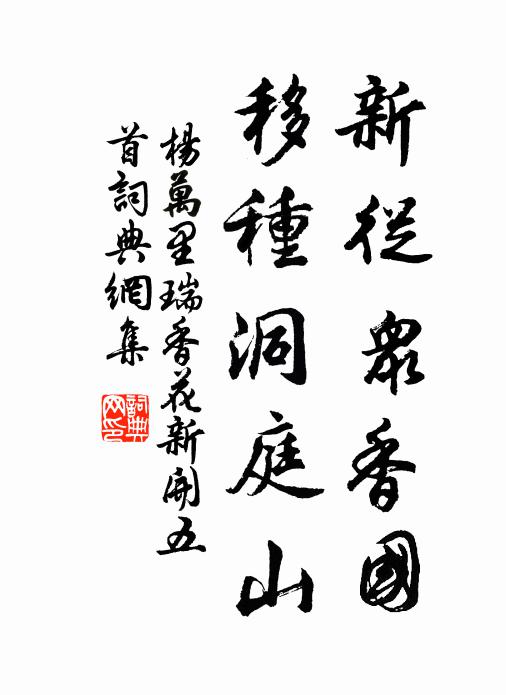 新從衆香國
移種洞庭山
楊萬里瑞香花新開五
首詞典網集
詞典
网印